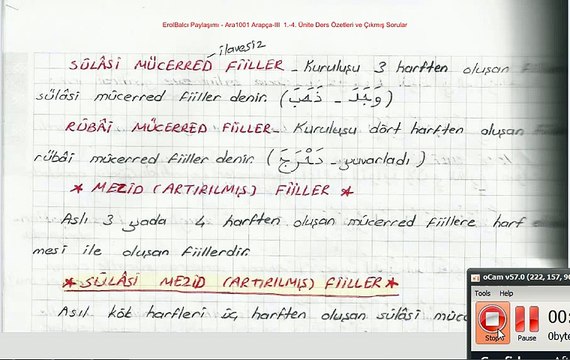 ErolBalcı Paylaşımı - Ara1001 Arapça-III 1.-4. Ünite Ders Özetleri ve Çıkmış Sorular
ilavesiz
SÜLÂSİ MÜCERRED FİİLLER - Kuruluşu 3 harften oluşan fiillere
sülâsi mücerred fiiller denir. (وَجَدَ - ذَهَبَ)
RÜBÂİ MÜCERRED FİİLLER - Kuruluşu dört harften oluşan
rübâi mücerred fiiller denir. (دَحْرَجَ - yuvarladı)
* MEZİD (ARTIRILMIŞ) FİİLLER *
Aslı 3 yada 4 harften oluşan mücerred fiillere harf
mesi ile oluşan fiillerdir.
* SÜLÂSİ MEZİD (ARTIRILMIŞ) FİİLLER *
Asıl kök harfleri üç harften oluşan sülâsi müc
oCam v57.0 (222, 157, 9
Tools Help
Stop Pause
00:
0byte